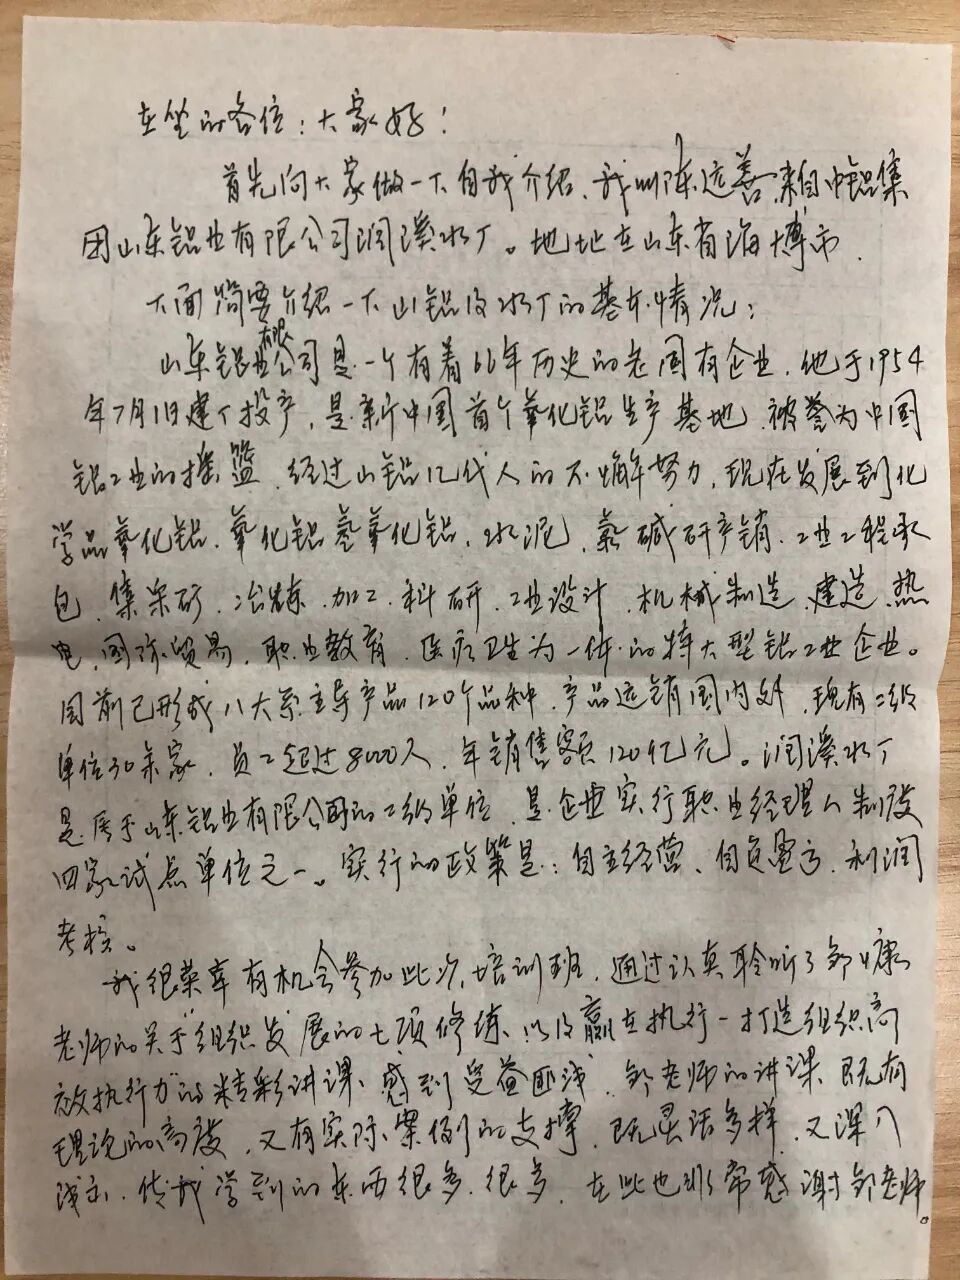 在坐的各位：大家好！
首先向大家做一下自我介绍，我叫陈远善，来自中铝集
团山东铝业有限公司润溪水厂。地址在山东省淄博市.
下面简要介绍一下山铝及水厂的基本情况：
山东铝业有限公司是一个有着66年历史的老国有企业，他于1954
年7月1日建厂投产，是新中国首个氧化铝生产基地，被誉为中国
铝工业的摇篮，经过山铝几代人的不懈努力，现在发展到化
学品氧化铝、氧化铝、氢氧化铝、水泥、氯碱研产销、工业工程承
包、集采矿、冶炼、加工、科研、工业设计、机械制造、建造、热
电、国际贸易、职业教育、医疗卫生为一体的特大型铝工业企业。
目前已形成八大系主导产品120个品种，产品远销国内外，现有二级
单位30余家，员工超过8000人，年销售额120亿元。润溪水厂
是属于山东铝业有限公司的二级单位，是企业实行职业经理人制度
四家试点单位之一。实行的政策是：自主经营、自负盈亏、利润
考核。
我很荣幸有机会参加此次培训班，通过认真聆听了邹康
老师的关于“组织发展的七项修练、以及赢在执行—打造组织高
效执行力”的精彩讲课、感到受益匪浅，邹老师的讲课、既有
理论的高度，又有实际案例的支撑，既灵活多样，又深入
浅出，使我学到的东西很多、很多，在此也非常感谢邹老师。